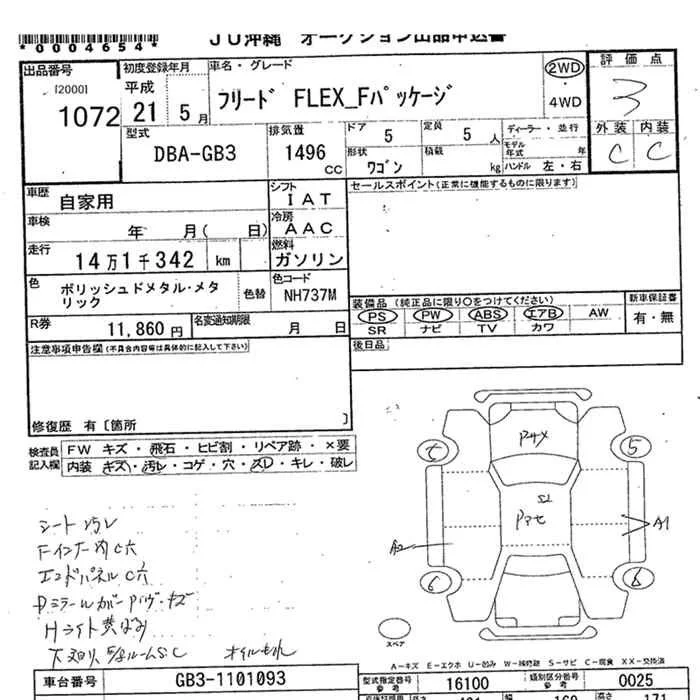 *0004654*
JU沖縄 オークション出品申込書
出品番号
[2000]
1072
初度登録年月
平成
21 5月
車名・グレード
フリード FLEX_Fパッケージ
2WD
・
4WD
評価点
3
外装 内装
C C
型式
DBA-GB3
排気量
1496
CC
ドア
5
定員
5 人
形状
ワゴン
積載
kg
ディーラー・並行
モデル年式 年
ハンドル 左・右
車歴
自家用
シフト
IAT
セールスポイント(正常に機能するものに限ります)
車検
年 月( 日)
冷房
AAC
走行
14万1千342 km
燃料
ガソリン
色
ポリッシュドメタル・メタリック
色替
色コード
NH737M
装備品(純正品に限り○をつけてください)
PS PW ABS エアB AW
SR ナビ TV カワ
新車保証書
有・無
R券
11,860円
名変通知期限
月 日
後日品
注意事項申告欄(不具合内容等は具体的に記入して下さい)
修復歴 有〔箇所 〕
検査員記入欄
FW キズ・飛石・ヒビ割・リペア跡・×要
内装 キズ・汚レ・コゲ・穴・スレ・キレ・破レ
シート汚レ
Fインナー内C穴
エンドパネルC穴
Hライト黄ばみ
A2
A1
S2
5
6
6
スペア
A-キズ E-エクボ U-凹み W-補修跡 S-サビ C-腐食 XX-交換済
車台番号
GB3-1101093
型式指定番号
参考
16100
類別区分番号
参考
0025